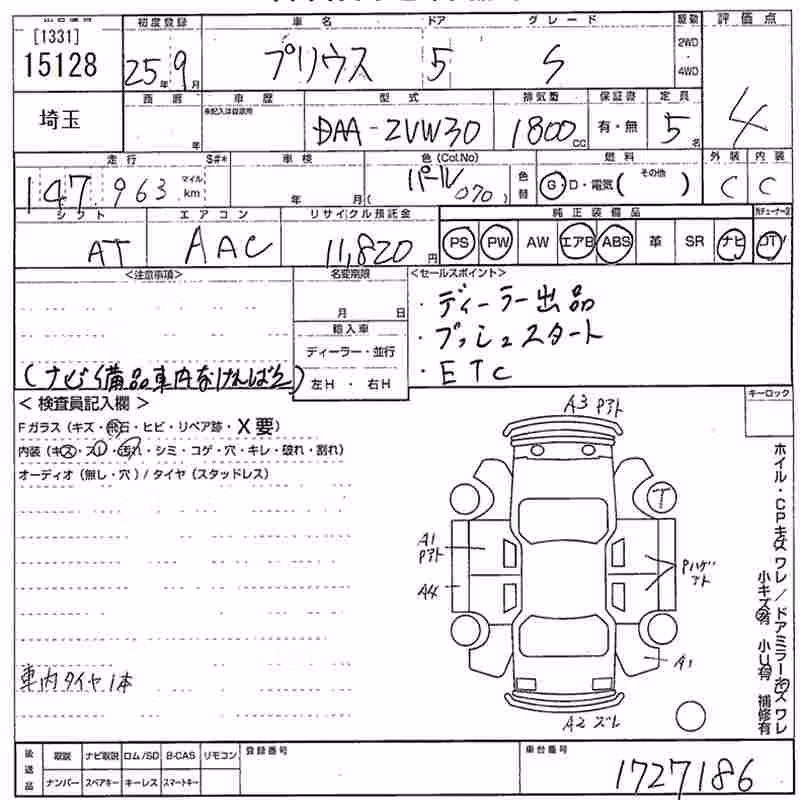 出品番号 初度登録 車名 ドア グレード 駆動 評価点
[1331]
15128 25年9月 プリウス 5 S 2WD・4WD 4
埼玉 西暦 年 車歴 未記入は自家用 型式 排気量 保証書 定員
DAA-ZVW30 1800cc 有・無 5名
走行 S#* 車検 色(Col.No) 色替 燃料 外装 内装
147,963 マイル km 年 月 パール (070) G・D・電気( その他 ) C C
シフト エアコン リサイクル預託金 純正装備品
AT AAC 11,820円 PS PW AW エアB ABS 革 SR ナビ TV
<注意事項> 名変期限 <セールスポイント>
月 日 ・ディーラー出品
輸入車 ・プッシュスタート
ディーラー・並行 ・ETC
(ナビ備品車内なければ欠) 左H・右H
<検査員記入欄> キーロック
Fガラス(キズ・飛石・ヒビ・リペア跡・X要)
内装(キズ・スレ・汚れ・シミ・コゲ・穴・キレ・破れ・割れ)
オーディオ(無し・穴)/タイヤ(スタッドレス)
A3 Pアト
T
A1 Pアト
A4
Pハゲアト
A1
A2 ズレ
ホイル・CPキズ ワレ/ドアミラーキズ ワレ
小キズ有 小U有 補修有
車内タイヤ1本
後送品 取説 ナビ取説 ロム/SD B-CAS リモコン 登録番号 車台番号
ナンバー スペアキー キーレス スマートキー 1727186